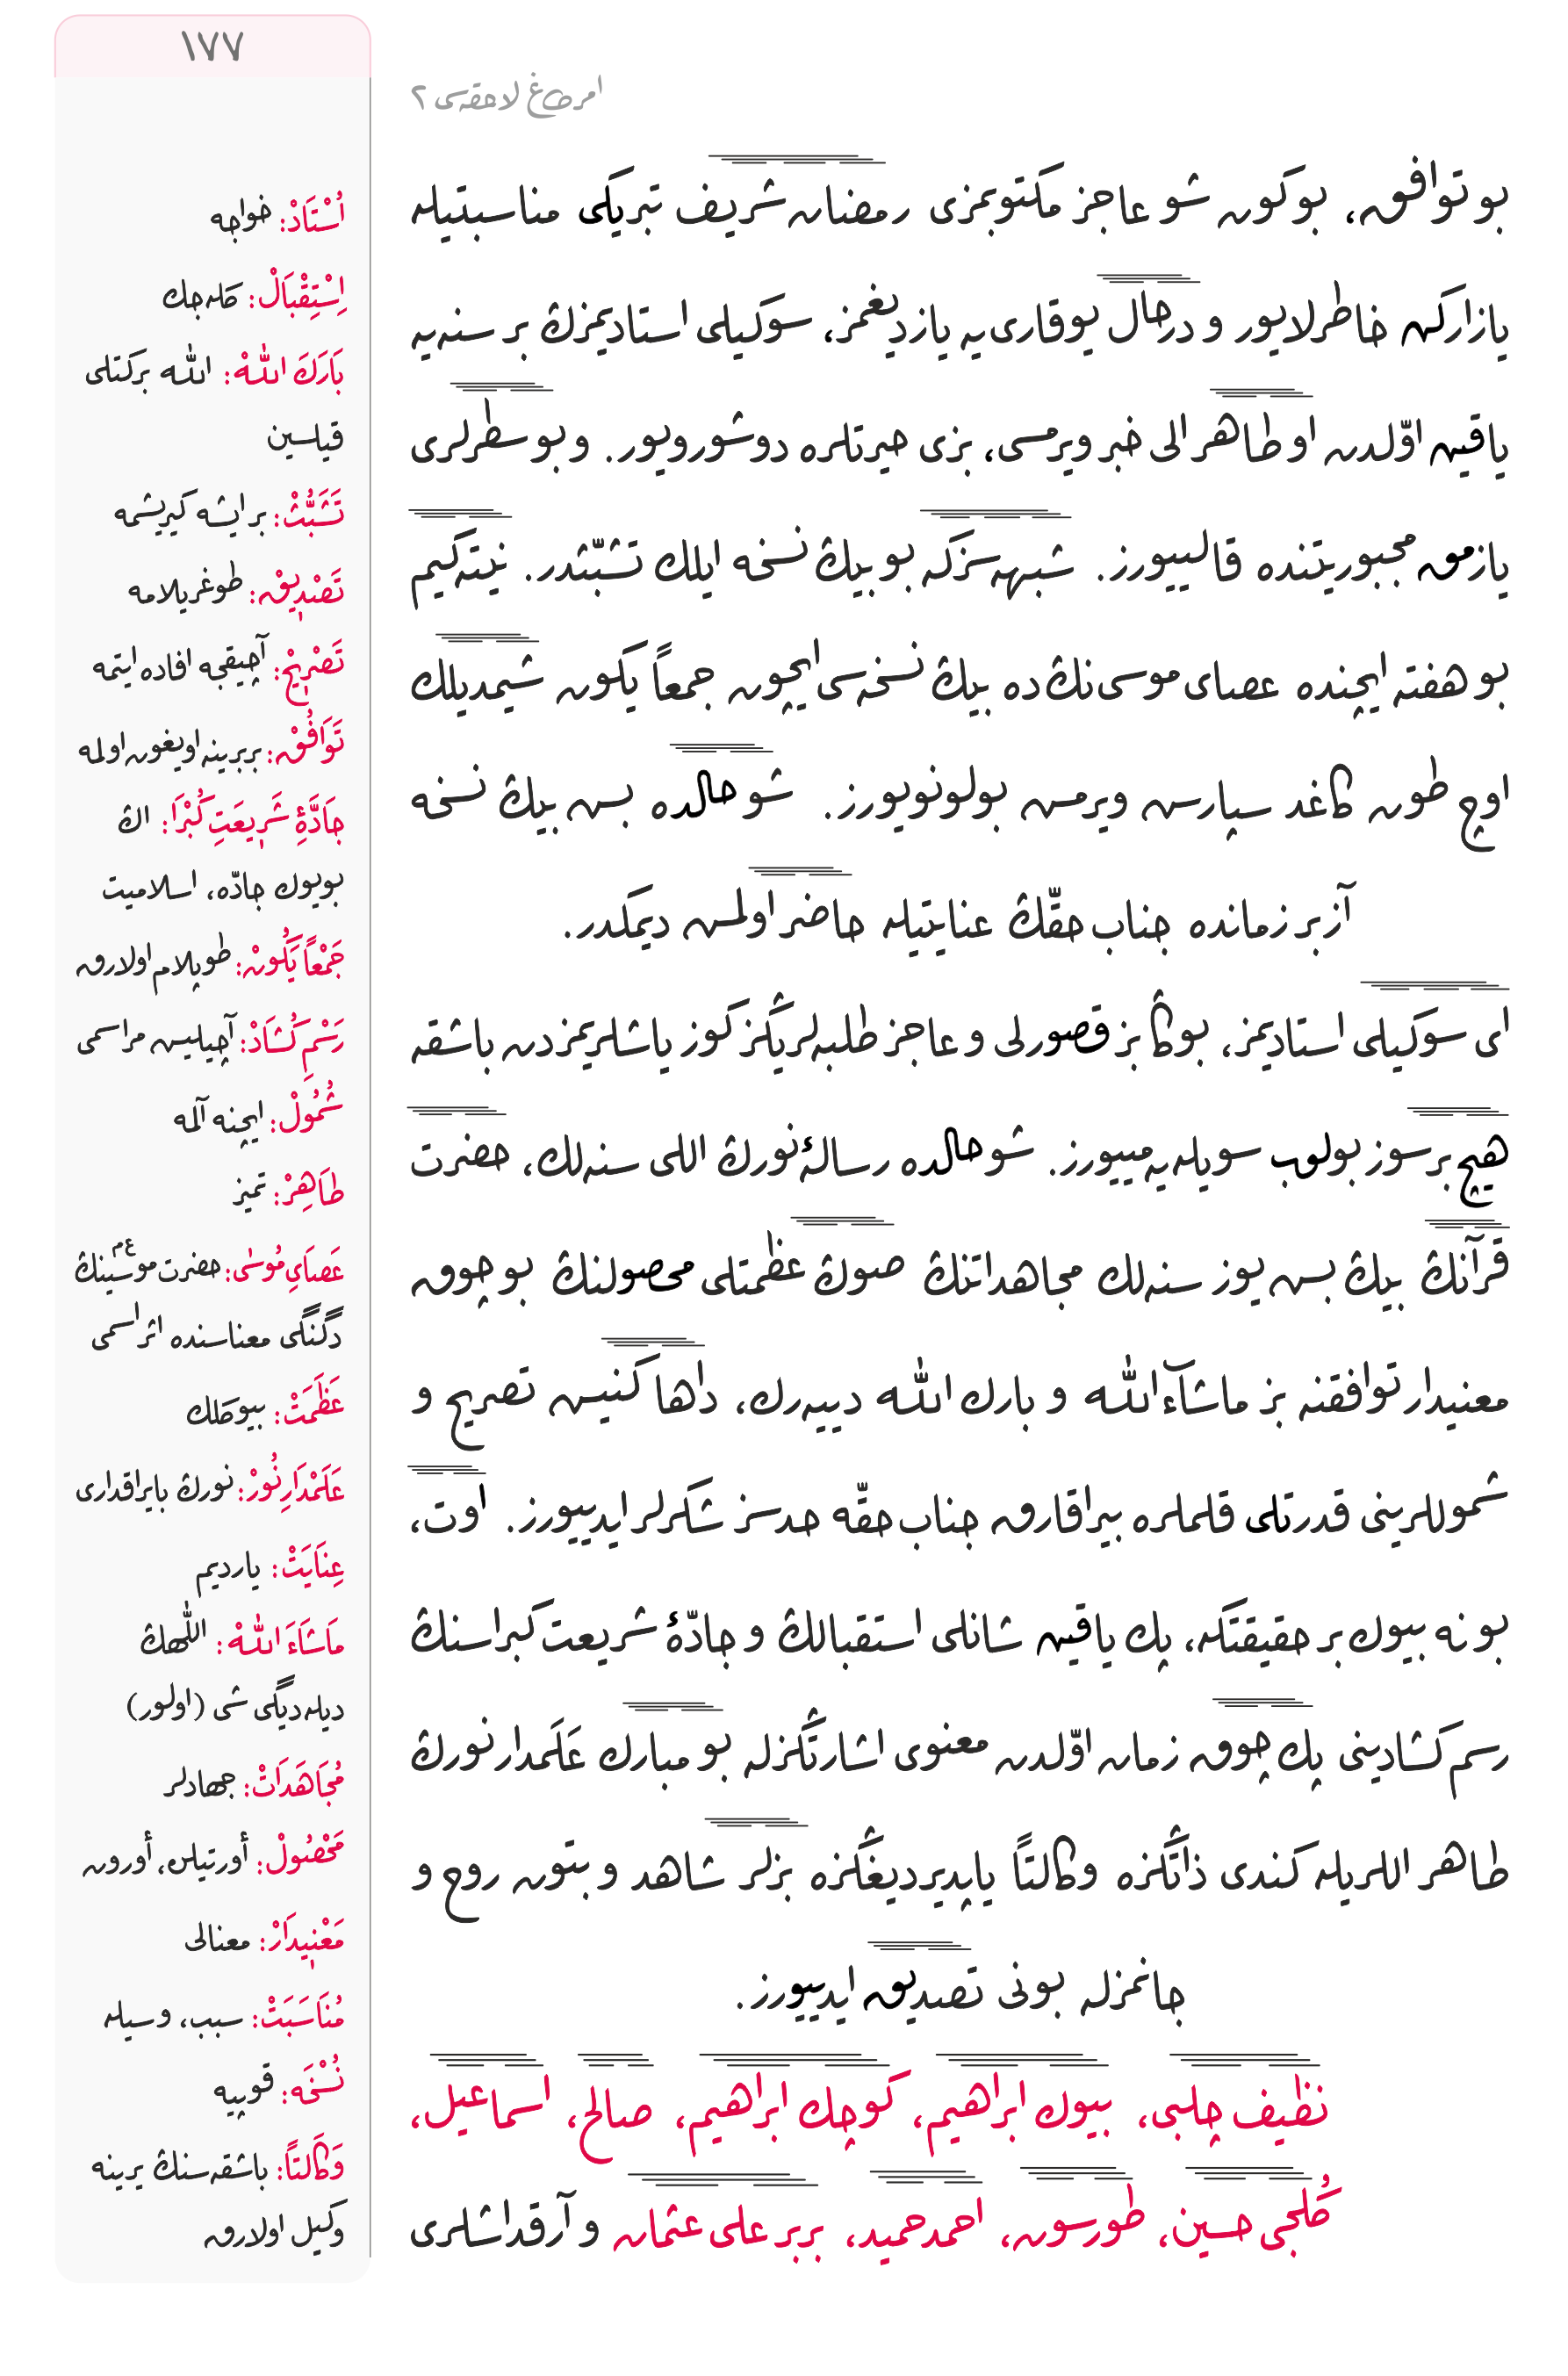 ١٧٧
امرطاغ لاحقه‌سى ٢
بو توافق، بو كون شو عاجز مكتوبمزى رمضان شريف تبريكى مناسبتيله
يازاركن خاطرلايور و درحال يوقارى‌يه يازديغمز، سوكيلى استاديمزڭ بر سنه‌يه
ياقين اوّلدن او طاهر الى خبر ويرمسى، بزى حيرتلره دوشورويور. و بو سطرلرى
يازمق مجبوريتنده قالييورز. شبهه‌سزكه بو بيڭ نسخه ايلك تشبّثدر. نيته‌كيم
بو هفته ايچنده عصاى موسى‌نڭ ده بيڭ نسخه‌سى ايچون جمعاً يكون شيمديلك
اوچ طون كاغد سپارس ويرمس بولونويورز. شو حالده بس بيڭ نسخه
آز بر زمانده جناب حقّڭ عنايتيله حاضر اولمس ديمكدر.
اى سوكيلى استاديمز، بوڭا بز قصورلى و عاجز طلبه‌لريڭز كوز ياشلريمزدن باشقه
هيچ بر سوز بولوب سويله‌يه‌مييورز. شو حالده رسالۀ نورڭ اللى سنه‌لك، حضرت
قرآنڭ بيڭ بس يوز سنه‌لك مجاهداتنڭ صوڭ عظمتلى محصولنڭ بو چوق
معنيدار توافقنه بز ماشآءالله و بارك الله دييه‌رك، داها كنيس تصريح و
شموللرينى قدرتلى قلملره بيراقارق جناب حقّه حدسز شكرلر ايدييورز. اوت،
بو نه بيوك بر حقيقتكه، پك ياقين شانلى استقبالڭ و جادّۀ شريعت كبراسنڭ
رسم كشادينى پك چوق زمان اوّلدن معنوى اشارتڭزله بو مبارك عَلَمدار نورڭ
طاهر اللريله كندى ذاتڭزه وكالتاً ياپديرديغڭزه بزلر شاهد و بتون روح و
جانمزله بونى تصديق ايدييورز.
نظيف چلبى، بيوك ابراهيم، كوچك ابراهيم، صالح، اسماعيل،
كلجى حسين، طورسون، احمد حميد، بربر على عثمان و آرقداشلرى
اُسْتَاذْ: خواجه
اِسْتِقْبَالْ: كله‌جك
بَارَكَ اللّٰهْ: الله بركتلى
قيلسين
تَشَبُّثْ: بر ايشه كيريشمه
تَصْدِيقْ: طوغريلامه
تَصْرِيحْ: آچيقجه افاده ايتمه
تَوَافُقْ: بربرينه اويغون اولمه
جَادَّۀِ شَرِيعَتِ كُبْرَا: اڭ
بويوك جادّه، اسلاميت
جَمْعاً يَكُونْ: طوپلام اولارق
رَسْمِ كُشَادْ: آچيليس مراسمى
شُمُولْ: ايچنه آلمه
طَاهِرْ: تميز
عَصَاىِ مُوسٰى: حضرت موسينڭ ع م
دگنگى معناسنده اثر اسمى
عَظَمَتْ: بيوكلك
عَلَمْدَارِ نُورْ: نورڭ بايراقدارى
عِنَايَتْ: يارديم
مَاشَاءَ اللّٰهْ: اللّٰهڭ
ديله‌ديگى شى (اولور)
مُجَاهَدَاتْ: جهادلر
مَحْصُولْ: أورتيلن، أورون
مَعْنِيدَارْ: معنالى
مُنَاسَبَتْ: سبب، وسيله
نُسْخَه: قوپيه
وَكَالتاً: باشقه‌سنڭ يرينه
وكيل اولارق